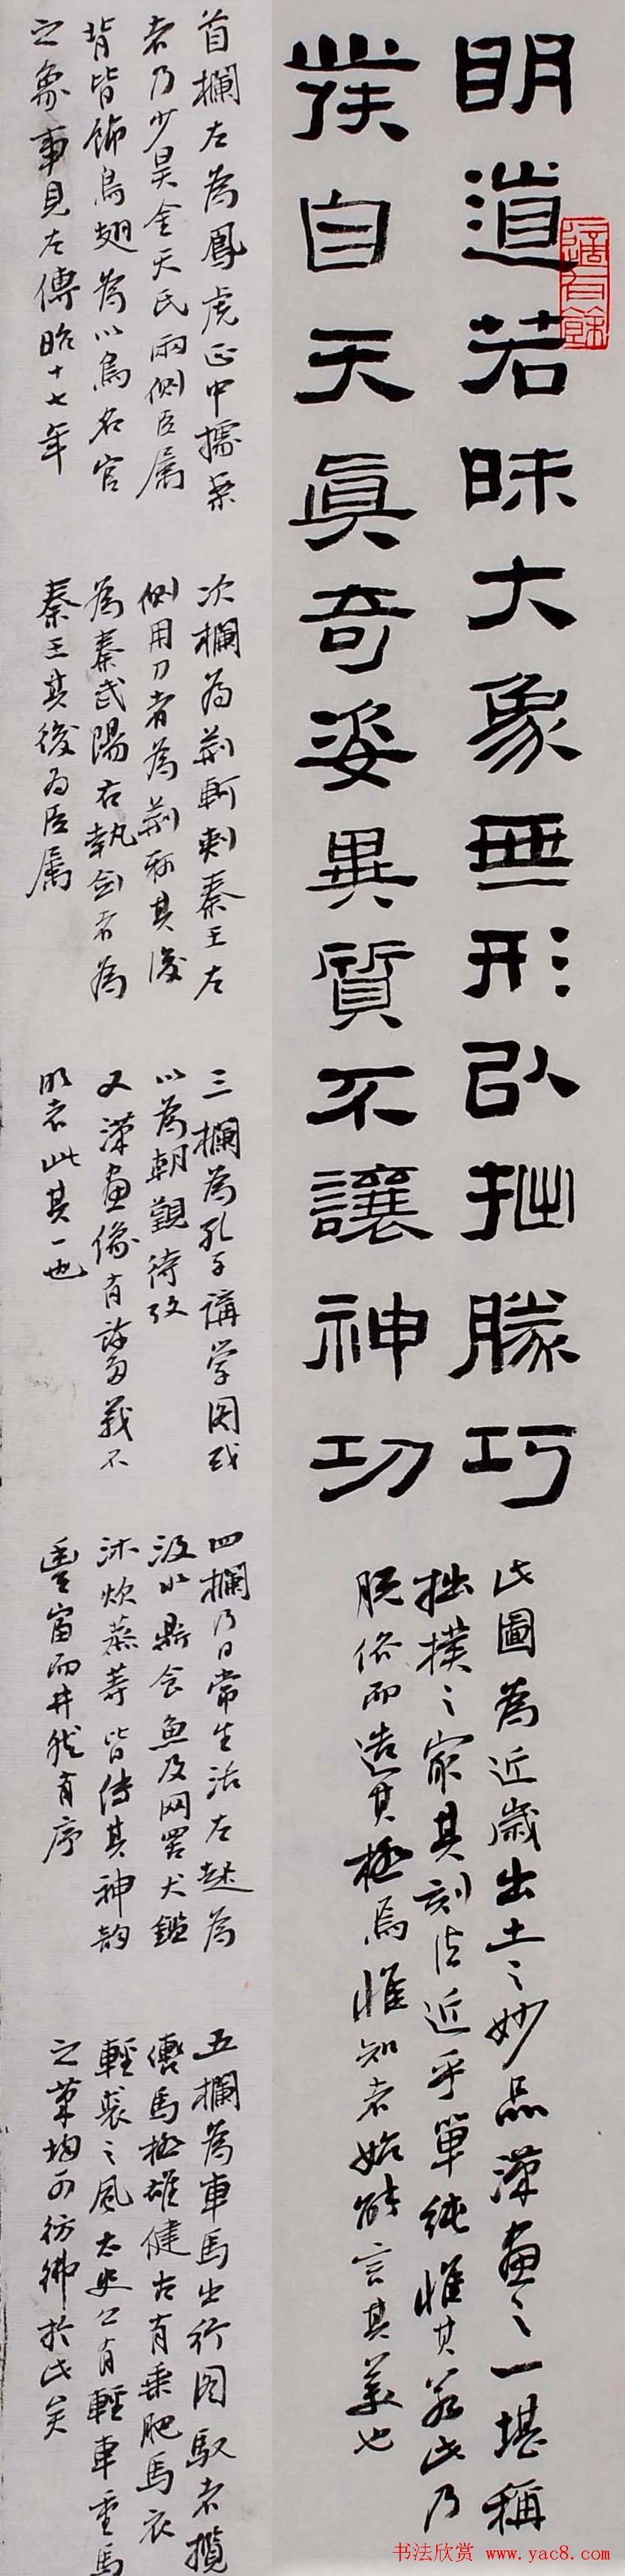 明道若昧大象無形以拙勝巧
發自天真奇姿異質不讓神功
此圖為近歲出土之妙品漢畫之一堪稱
拙樸之最其刻法近乎單純惟其若此乃
脫俗而造其極焉惟知者始能言其美也
首欄左為鳳虎正中據案
者乃少昊金天氏兩側臣屬
背皆飾鳥翅為以鳥名官
之象事見左傳昭十七年
次欄為荊軻刺秦王左
側用刀者為荊軻其後
為秦武陽右執劍者為
秦王其後為臣屬
三欄為孔子講學圖或
以為朝觀待考
又漢畫像有舊義不
明者此其一也
四欄乃日常生活左起為
汲水鼎食魚及网罟犬鑑
沐炊蒸等皆傳其神韵
豐富而井然有序
五欄為車馬出行圖馭者攬
轡馬極雄健古有乘肥馬衣
輕裘之風太史公有輕車重馬
之筆均可彷彿於此矣
適有餘
书法欣赏 www.yac8.com